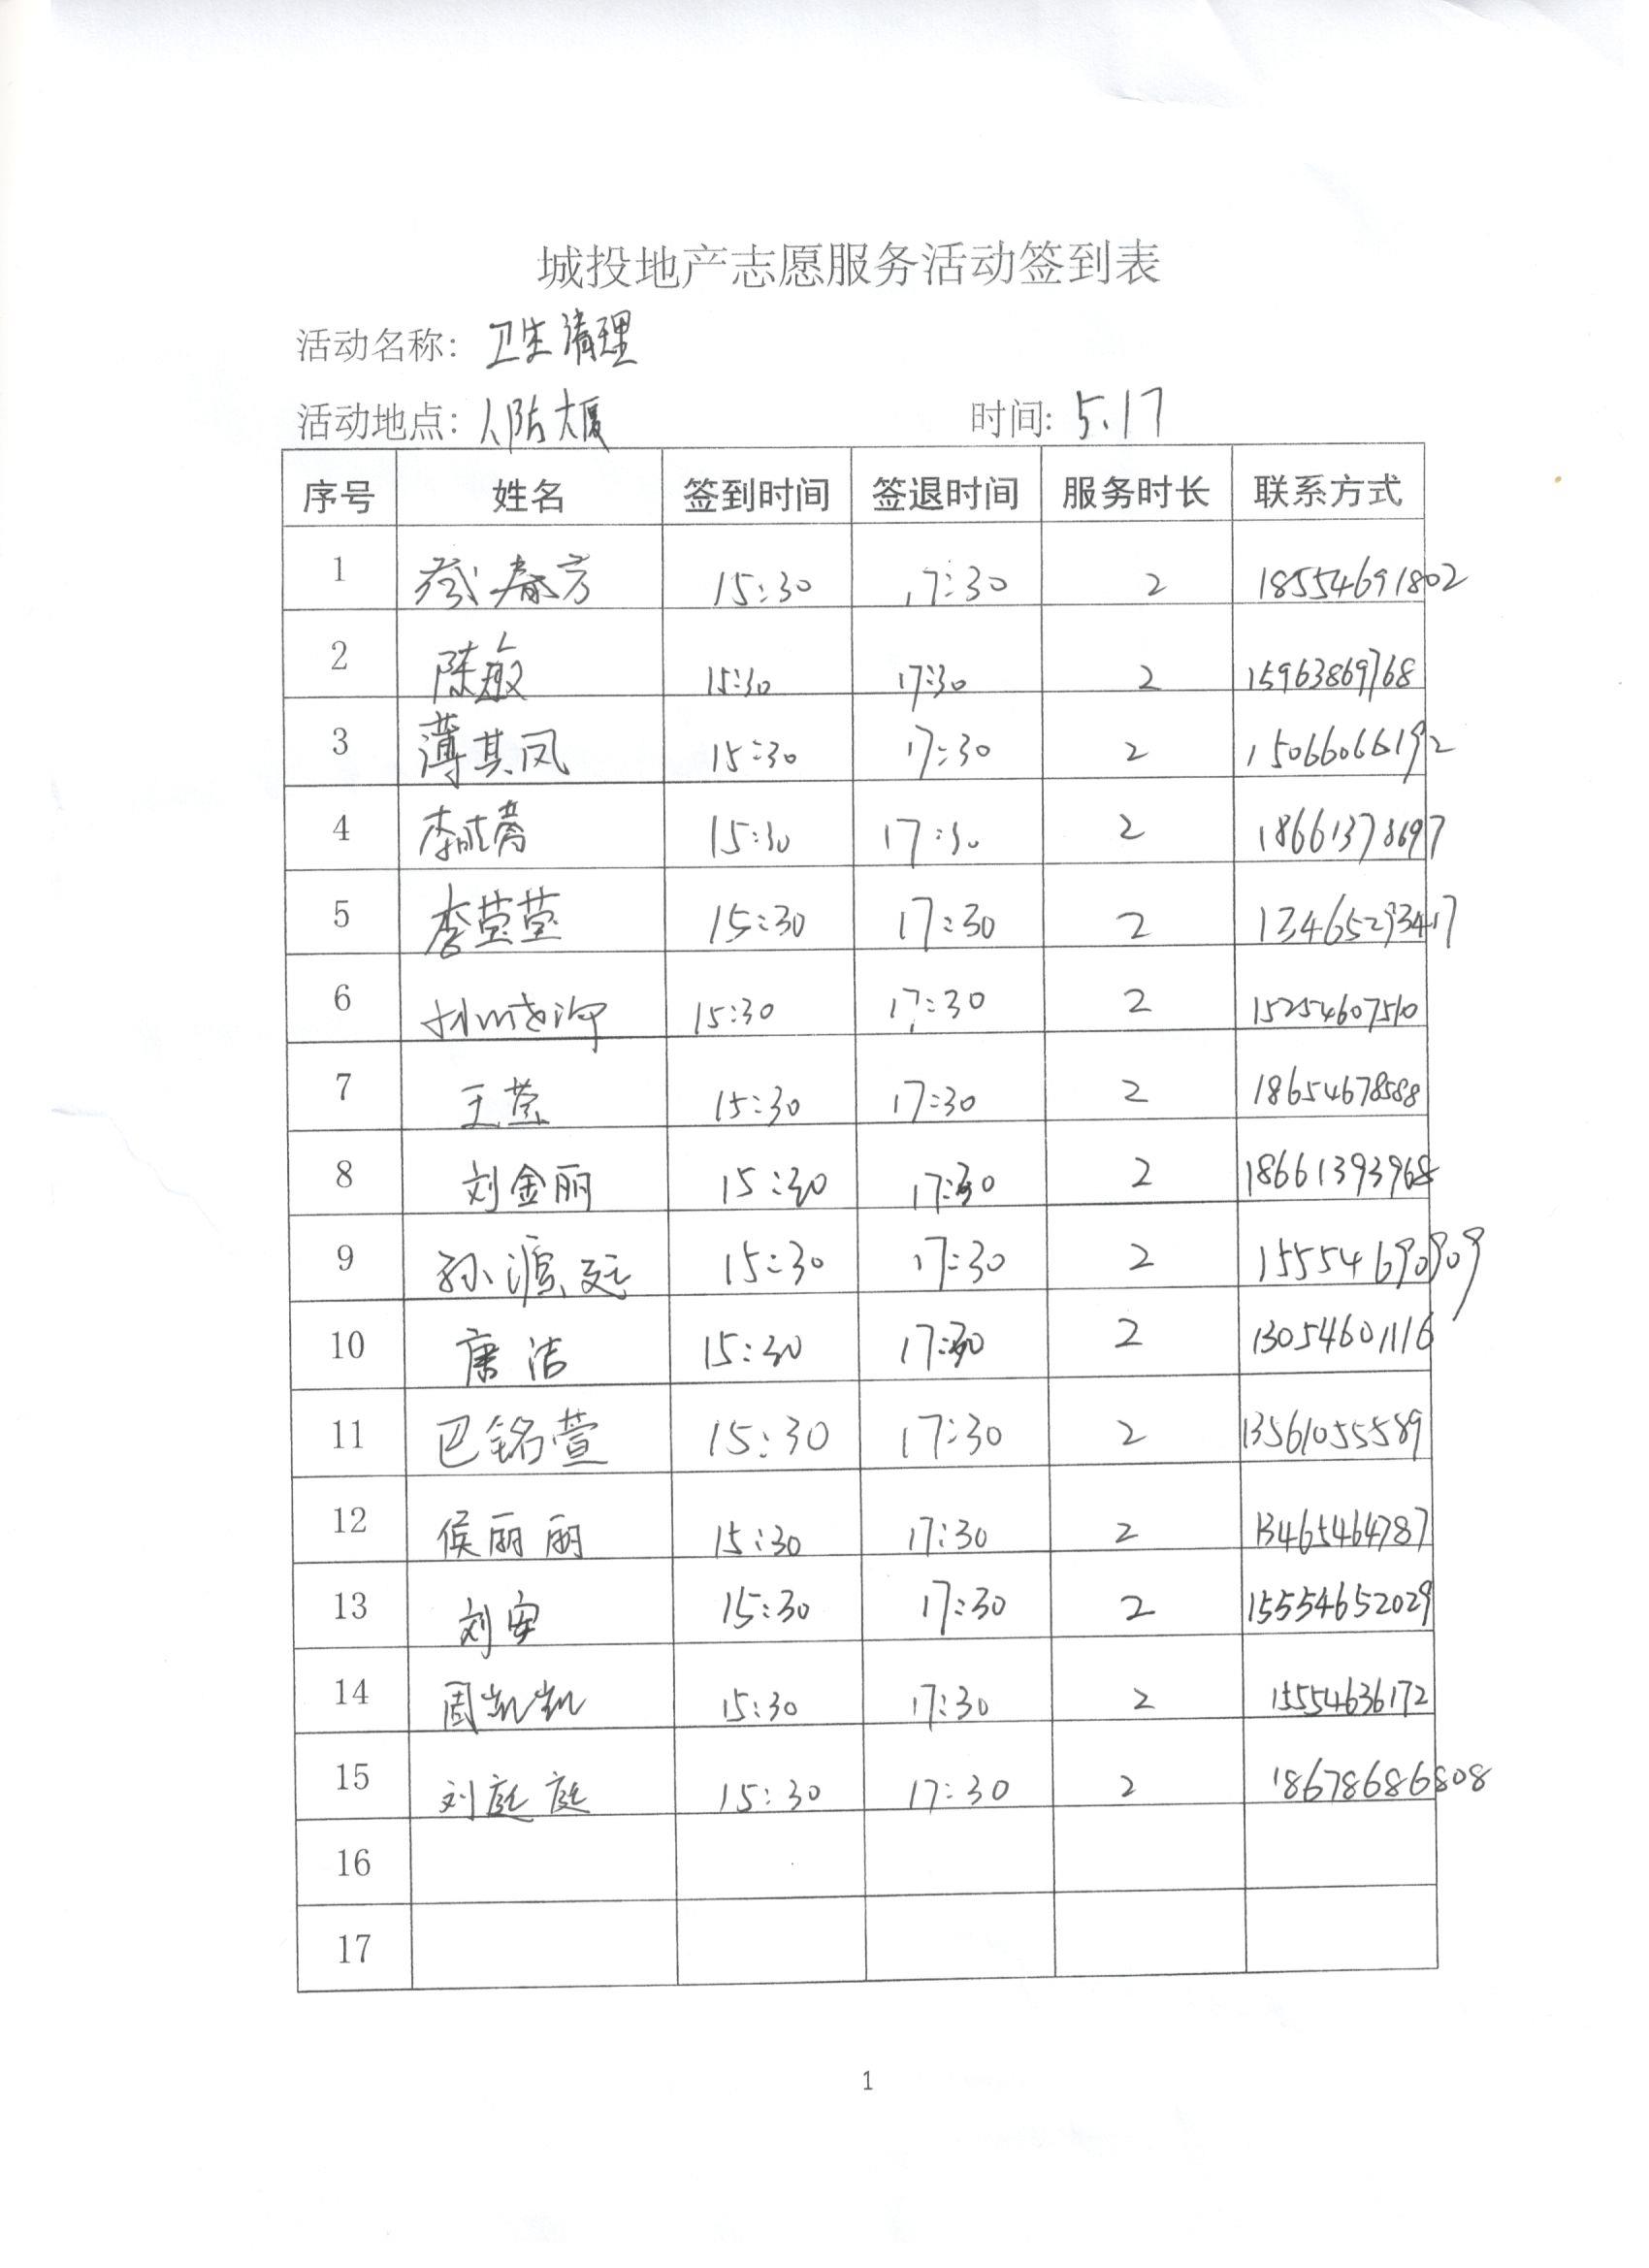 城投地产志愿服务活动签到表
活动名称: 卫生清理
活动地点: 人防大厦 时间: 5.17
序号 姓名 签到时间 签退时间 服务时长 联系方式
1 春芳 15:30 17:30 2 18554691802
2 陈敏 15:30 17:30 2 15963869768
3 薄其凤 15:30 17:30 2 15066066192
4 李 15:30 17:30 2 18661378697
5 李莹莹 15:30 17:30 2 13465293417
6 15:30 17:30 2 15254607510
7 王莹 15:30 17:30 2 18654678588
8 刘金丽 15:30 17:30 2 18661393968
9 孙源远 15:30 17:30 2 15554690909
10 唐洁 15:30 17:30 2 13054601116
11 巴铭萱 15:30 17:30 2 13561055589
12 侯丽丽 15:30 17:30 2 13465464787
13 刘安 15:30 17:30 2 15554652029
14 周凯凯 15:30 17:30 2 15554636172
15 刘庭庭 15:30 17:30 2 18678686808
16
17
1